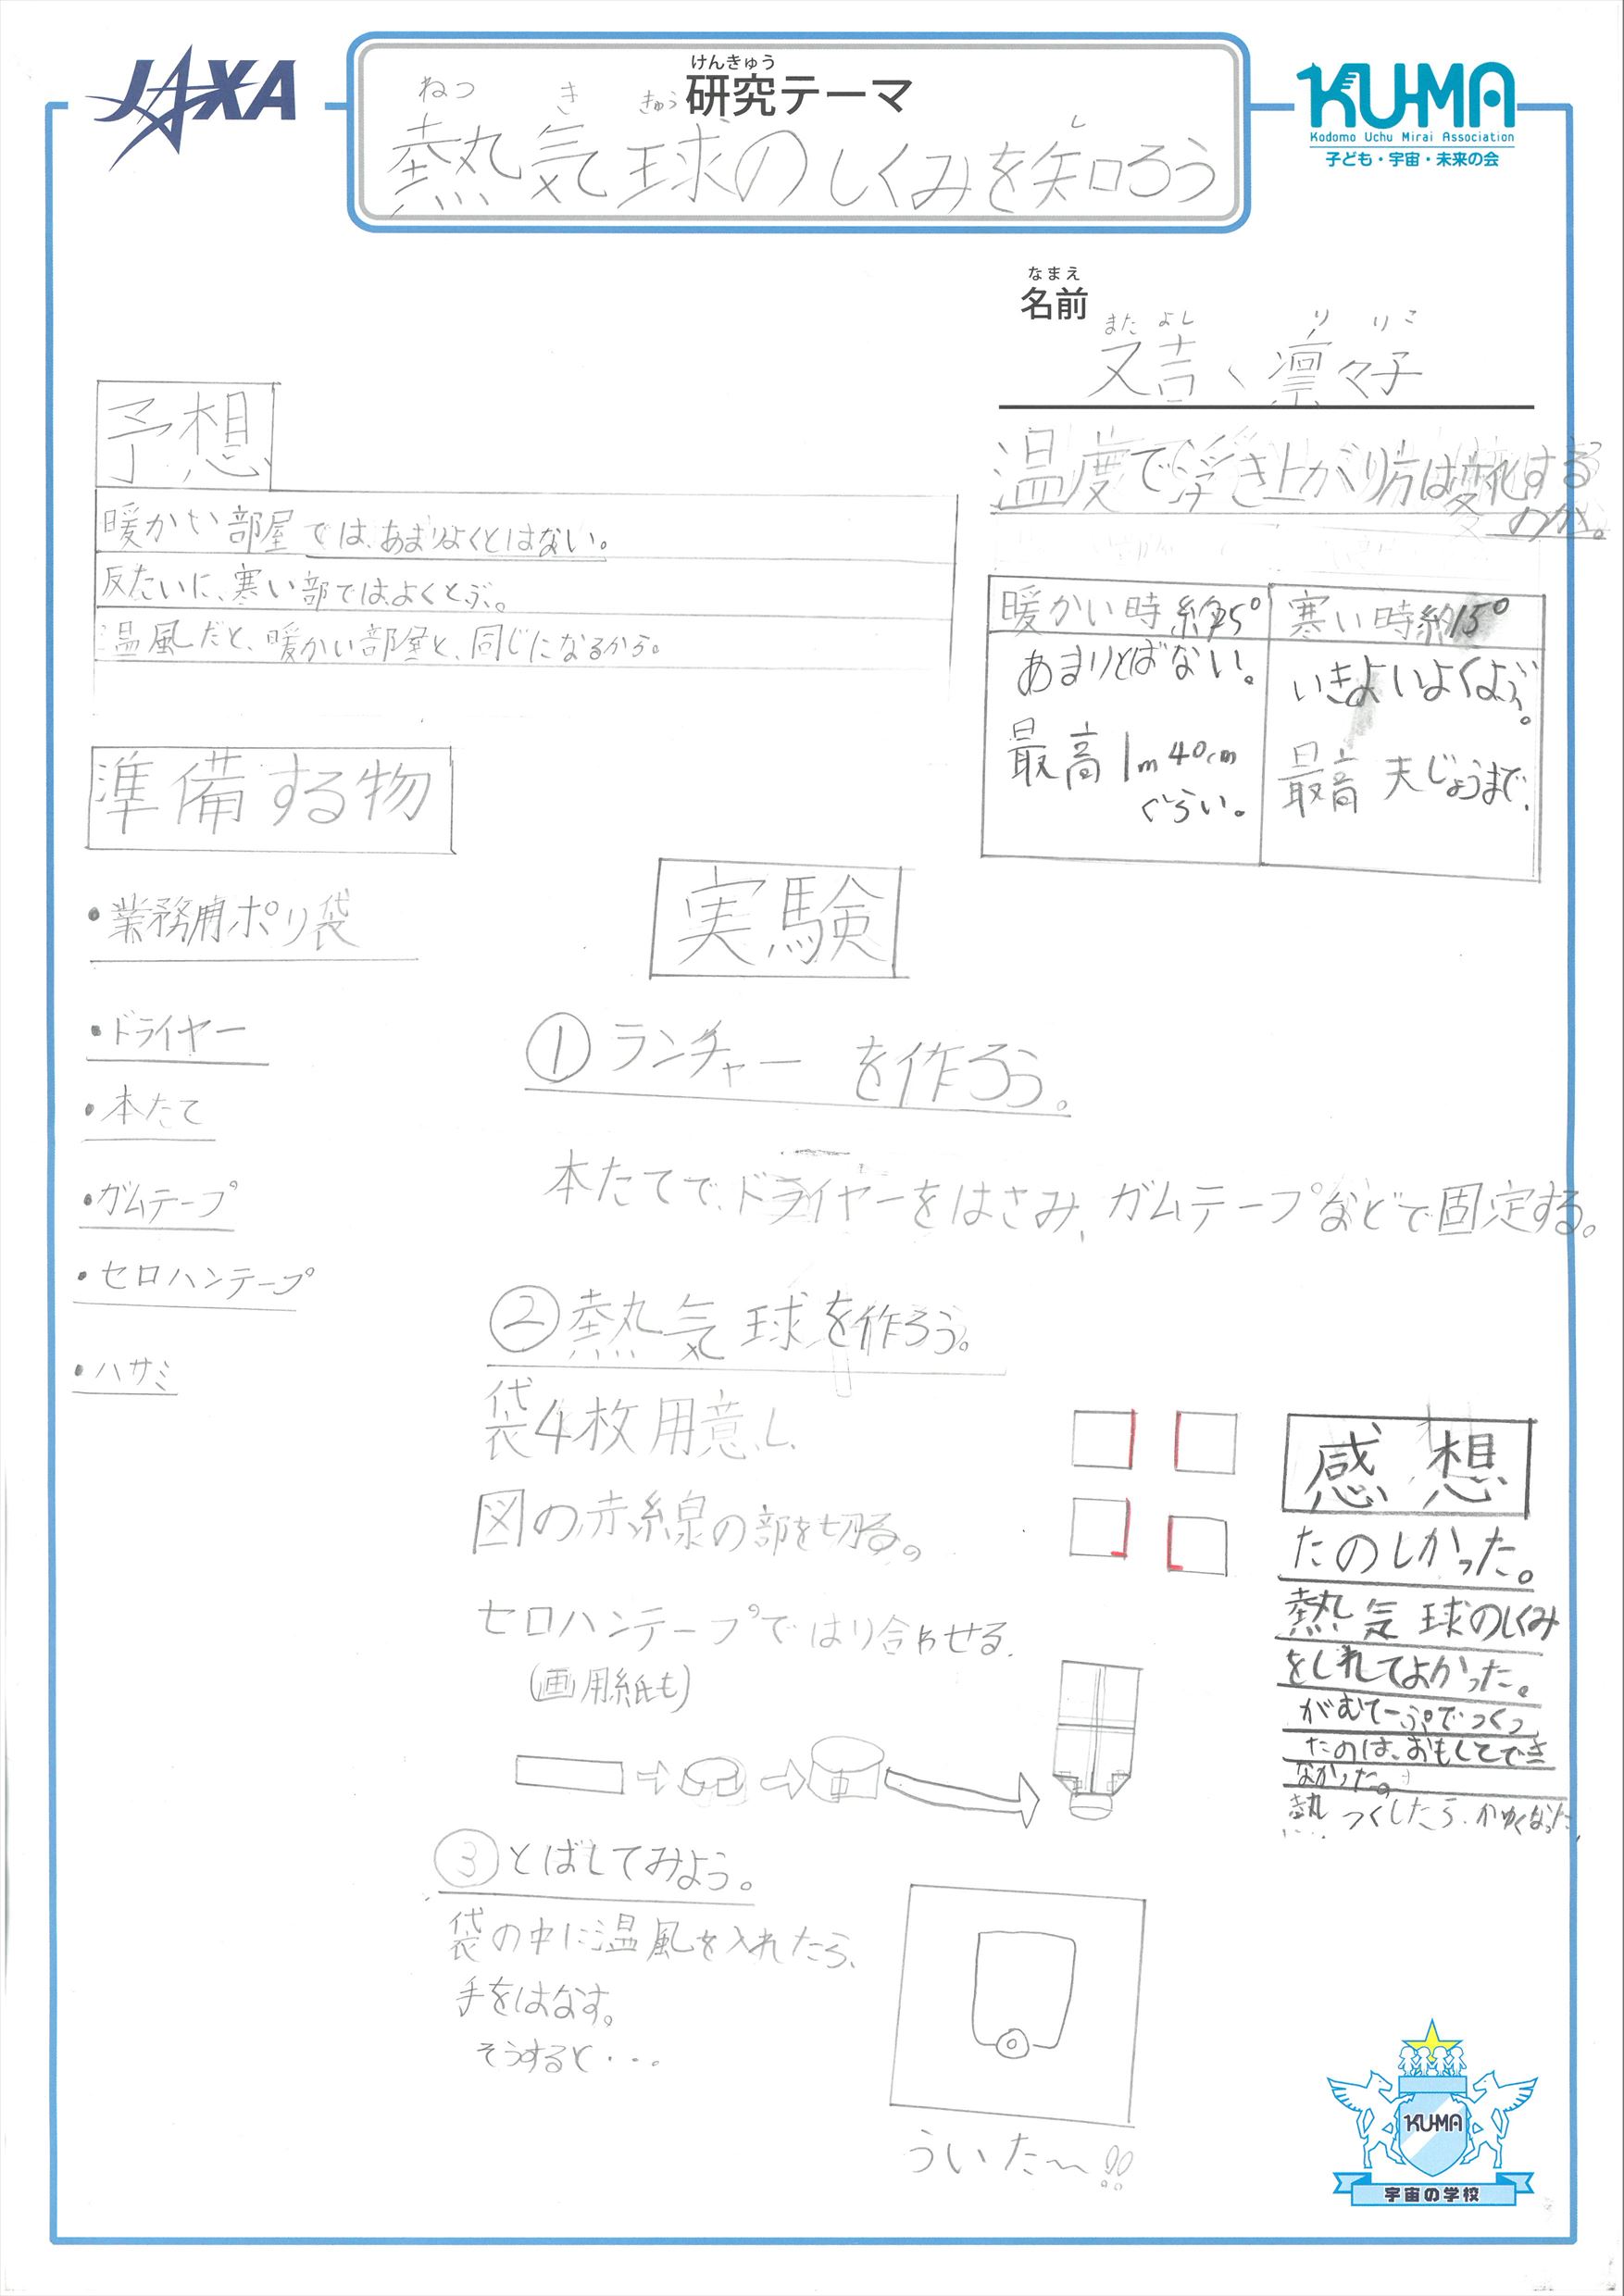 JAXA
けんきゅう
研究テーマ
ねつ き きゅう し
熱気球のしくみを知ろう
KU-MA
Kodomo Uchu Mirai Association
子ども・宇宙・未来の会
なまえ
名前
また よし り り こ
又吉、凛々子
予想
暖かい部屋では、あまりよくとばない。
反たいに、寒い部ではよくとぶ。
温風だと、暖かい部屋と、同じになるから。
温度で浮き上がり方は変化する
のか。
暖かい時 約25°
あまりとばない。
最高 1m40cm
ぐらい。
寒い時約15°
いきよいよく
最高 天じょうまで、
準備する物
・業務用ポリ袋
・ドライヤー
・本たて
・ガムテープ
・セロハンテープ
・ハサミ
実験
① ランチャー を作ろう。
本たてで、ドライヤーをはさみ、ガムテープなどで固定する。
② 熱気球を作ろう。
袋4枚用意し、
図の赤線の部を切る。
セロハンテープではり合わせる。
(画用紙も)
③ とばしてみよう。
袋の中に温風を入れたら、
手をはなす。
そうすると・・・
ういた〜!!
感想
たのしかった。
熱気球のしくみ
をしれてよかった。
がむてーぷでつくっ
たのは、おもくてでき
なかった。
熱つくしたら、かるくなった。
KU-MA
宇宙の学校